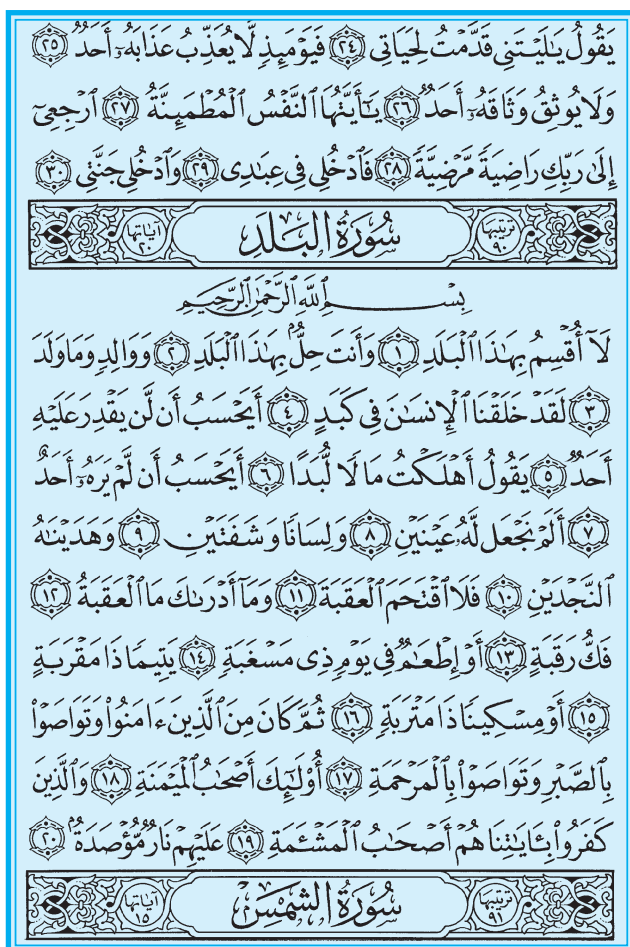 يَقُولُ يَٰلَيْتَنِي قَدَّمْتُ لِحَيَاتِي ﴿٢٤﴾ فَيَوْمَئِذٍ لَّا يُعَذِّبُ عَذَابَهُۥٓ أَحَدٌ ﴿٢٥﴾
وَلَا يُوثِقُ وَثَاقَهُۥٓ أَحَدٌ ﴿٢٦﴾ يَٰٓأَيَّتُهَا ٱلنَّفْسُ ٱلْمُطْمَئِنَّةُ ﴿٢٧﴾ ٱرْجِعِىٓ
إِلَىٰ رَبِّكِ رَاضِيَةً مَّرْضِيَّةً ﴿٢٨﴾ فَٱدْخُلِى فِى عِبَٰدِى ﴿٢٩﴾ وَٱدْخُلِى جَنَّتِى ﴿٣٠﴾
ترتيبها ٩٠ سُورَةُ الْبَلَدِ آياتها ٢٠
بِسْمِ ٱللَّهِ ٱلرَّحْمَٰنِ ٱلرَّحِيمِ
لَآ أُقْسِمُ بِهَٰذَا ٱلْبَلَدِ ﴿١﴾ وَأَنتَ حِلٌّۢ بِهَٰذَا ٱلْبَلَدِ ﴿٢﴾ وَوَالِدٍ وَمَا وَلَدَ
﴿٣﴾ لَقَدْ خَلَقْنَا ٱلْإِنسَٰنَ فِى كَبَدٍ ﴿٤﴾ أَيَحْسَبُ أَن لَّن يَقْدِرَ عَلَيْهِ
أَحَدٌ ﴿٥﴾ يَقُولُ أَهْلَكْتُ مَالًا لُّبَدًا ﴿٦﴾ أَيَحْسَبُ أَن لَّمْ يَرَهُۥٓ أَحَدٌ
﴿٧﴾ أَلَمْ نَجْعَل لَّهُۥ عَيْنَيْنِ ﴿٨﴾ وَلِسَانًا وَشَفَتَيْنِ ﴿٩﴾ وَهَدَيْنَٰهُ
ٱلنَّجْدَيْنِ ﴿١٠﴾ فَلَا ٱقْتَحَمَ ٱلْعَقَبَةَ ﴿١١﴾ وَمَآ أَدْرَىٰكَ مَا ٱلْعَقَبَةُ ﴿١٢﴾
فَكُّ رَقَبَةٍ ﴿١٣﴾ أَوْ إِطْعَٰمٌ فِى يَوْمٍ ذِى مَسْغَبَةٍ ﴿١٤﴾ يَتِيمًا ذَا مَقْرَبَةٍ
﴿١٥﴾ أَوْ مِسْكِينًا ذَا مَتْرَبَةٍ ﴿١٦﴾ ثُمَّ كَانَ مِنَ ٱلَّذِينَ ءَامَنُوا۟ وَتَوَاصَوْا۟
بِٱلصَّبْرِ وَتَوَاصَوْا۟ بِٱلْمَرْحَمَةِ ﴿١٧﴾ أُو۟لَٰٓئِكَ أَصْحَٰبُ ٱلْمَيْمَنَةِ ﴿١٨﴾ وَٱلَّذِينَ
كَفَرُوا۟ بِـَٔايَٰتِنَا هُمْ أَصْحَٰبُ ٱلْمَشْـَٔمَةِ ﴿١٩﴾ عَلَيْهِمْ نَارٌ مُّؤْصَدَةٌۢ ﴿٢٠﴾
ترتيبها ٩١ سُورَةُ الشَّمْسِ آياتها ١٥